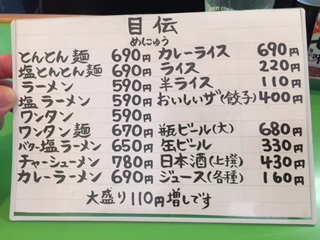 目伝
めにゅう
とんとん麺 690円
塩とんとん麺 690円
ラーメン 590円
塩ラーメン 590円
ワンタン 590円
ワンタン麺 670円
バター塩ラーメン 650円
チャーシューメン 780円
カレーラーメン 690円
カレーライス 690円
ライス 220円
半ライス 110円
おいしいザ(餃子) 400円
瓶ビール(大) 680円
缶ビール 330円
日本酒(上撰) 430円
ジュース(各種) 160円
大盛り110円増しです